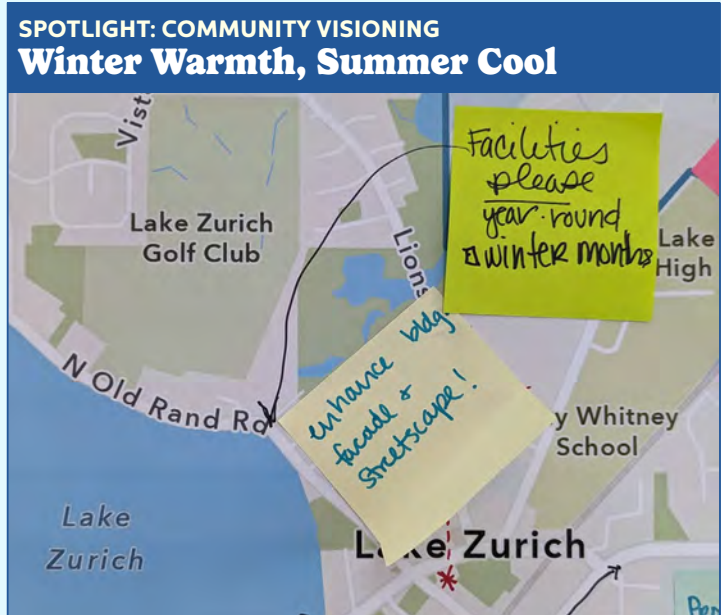 SPOTLIGHT: COMMUNITY VISIONING
Winter Warmth, Summer Cool
Vist
Lake Zurich
Golf Club
Lions
Facilities
please
year-round
winter months
Lake
High
N Old Rand Rd
enhance bldg
facade &
streetscape!
y Whitney
School
Lake
Zurich
Lake Zurich